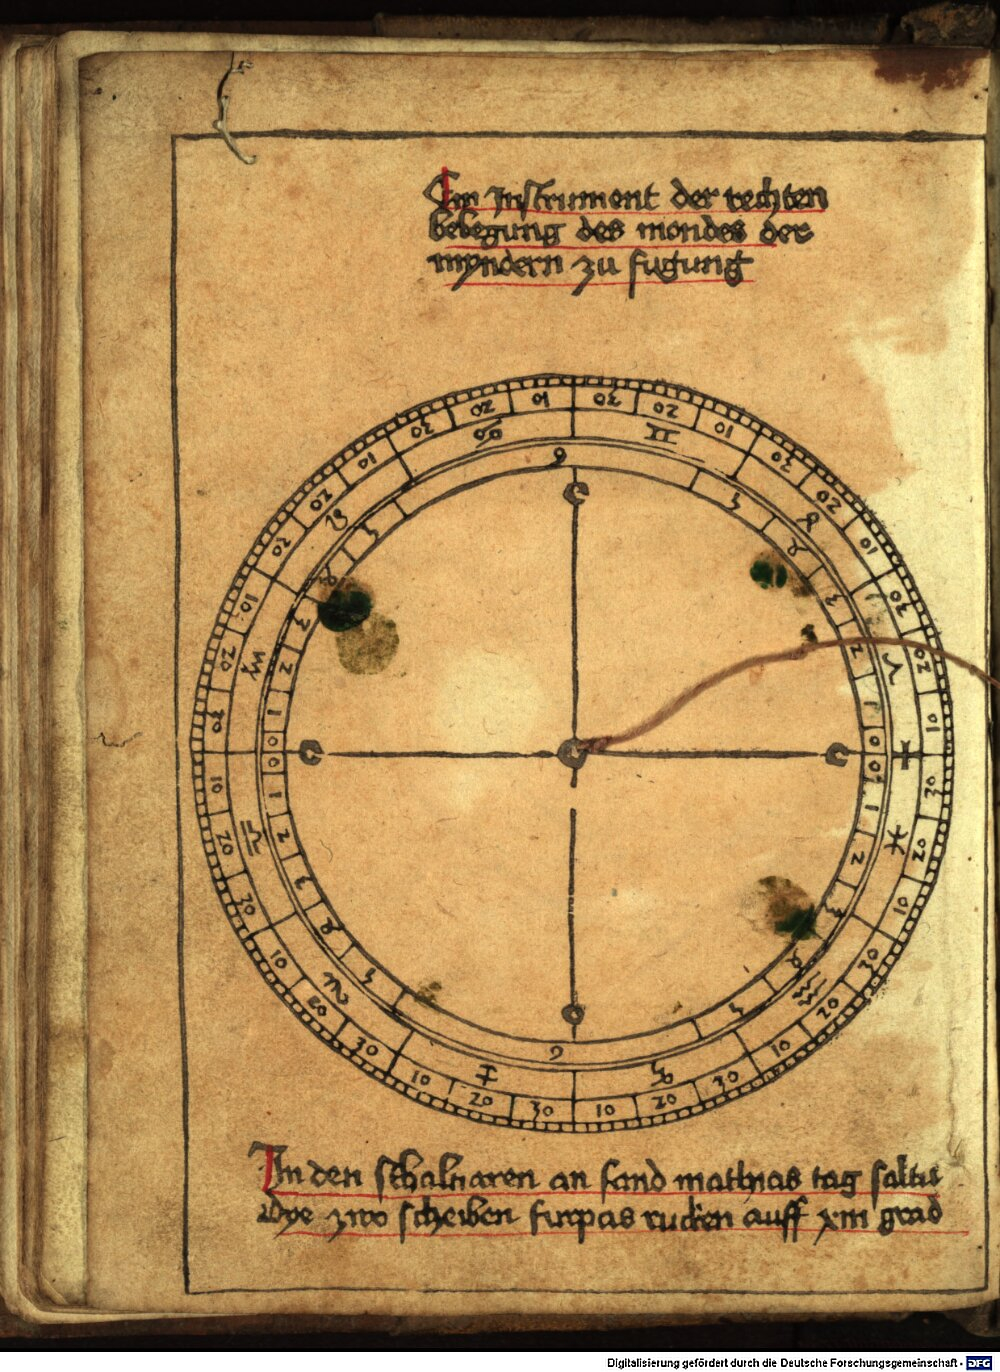 Ein Instrument der rechten
bebegung des mondes der
myndern zu fugung
10 20 30
10 20 30
10 20 30
10 20 30
10 20 30
10 20 30
10 20 30
10 20 30
10 20 30
10 20 30
10 20 30
10 20 30
♋ ♊ ♉ ♈ ♓ ♒ ♑ ♐ ♏ ♎ ♍ ♌
6 5 4 3 2 1 0
0 1 2 3 4 5 6
5 4 3 2 1 0
0 1 2 3 4 5
In den schaltiaren an sand mathias tag saltu
dye zwo scheiben furpas rucken auff xiii grad
Digitalisierung gefördert durch die Deutsche Forschungsgemeinschaft - DFG